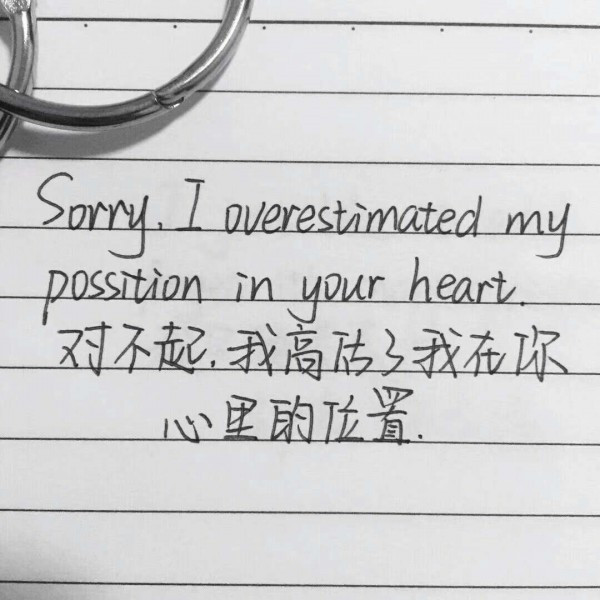 Sorry, I overestimated my
possition in your heart.
对不起，我高估了我在你
心里的位置.